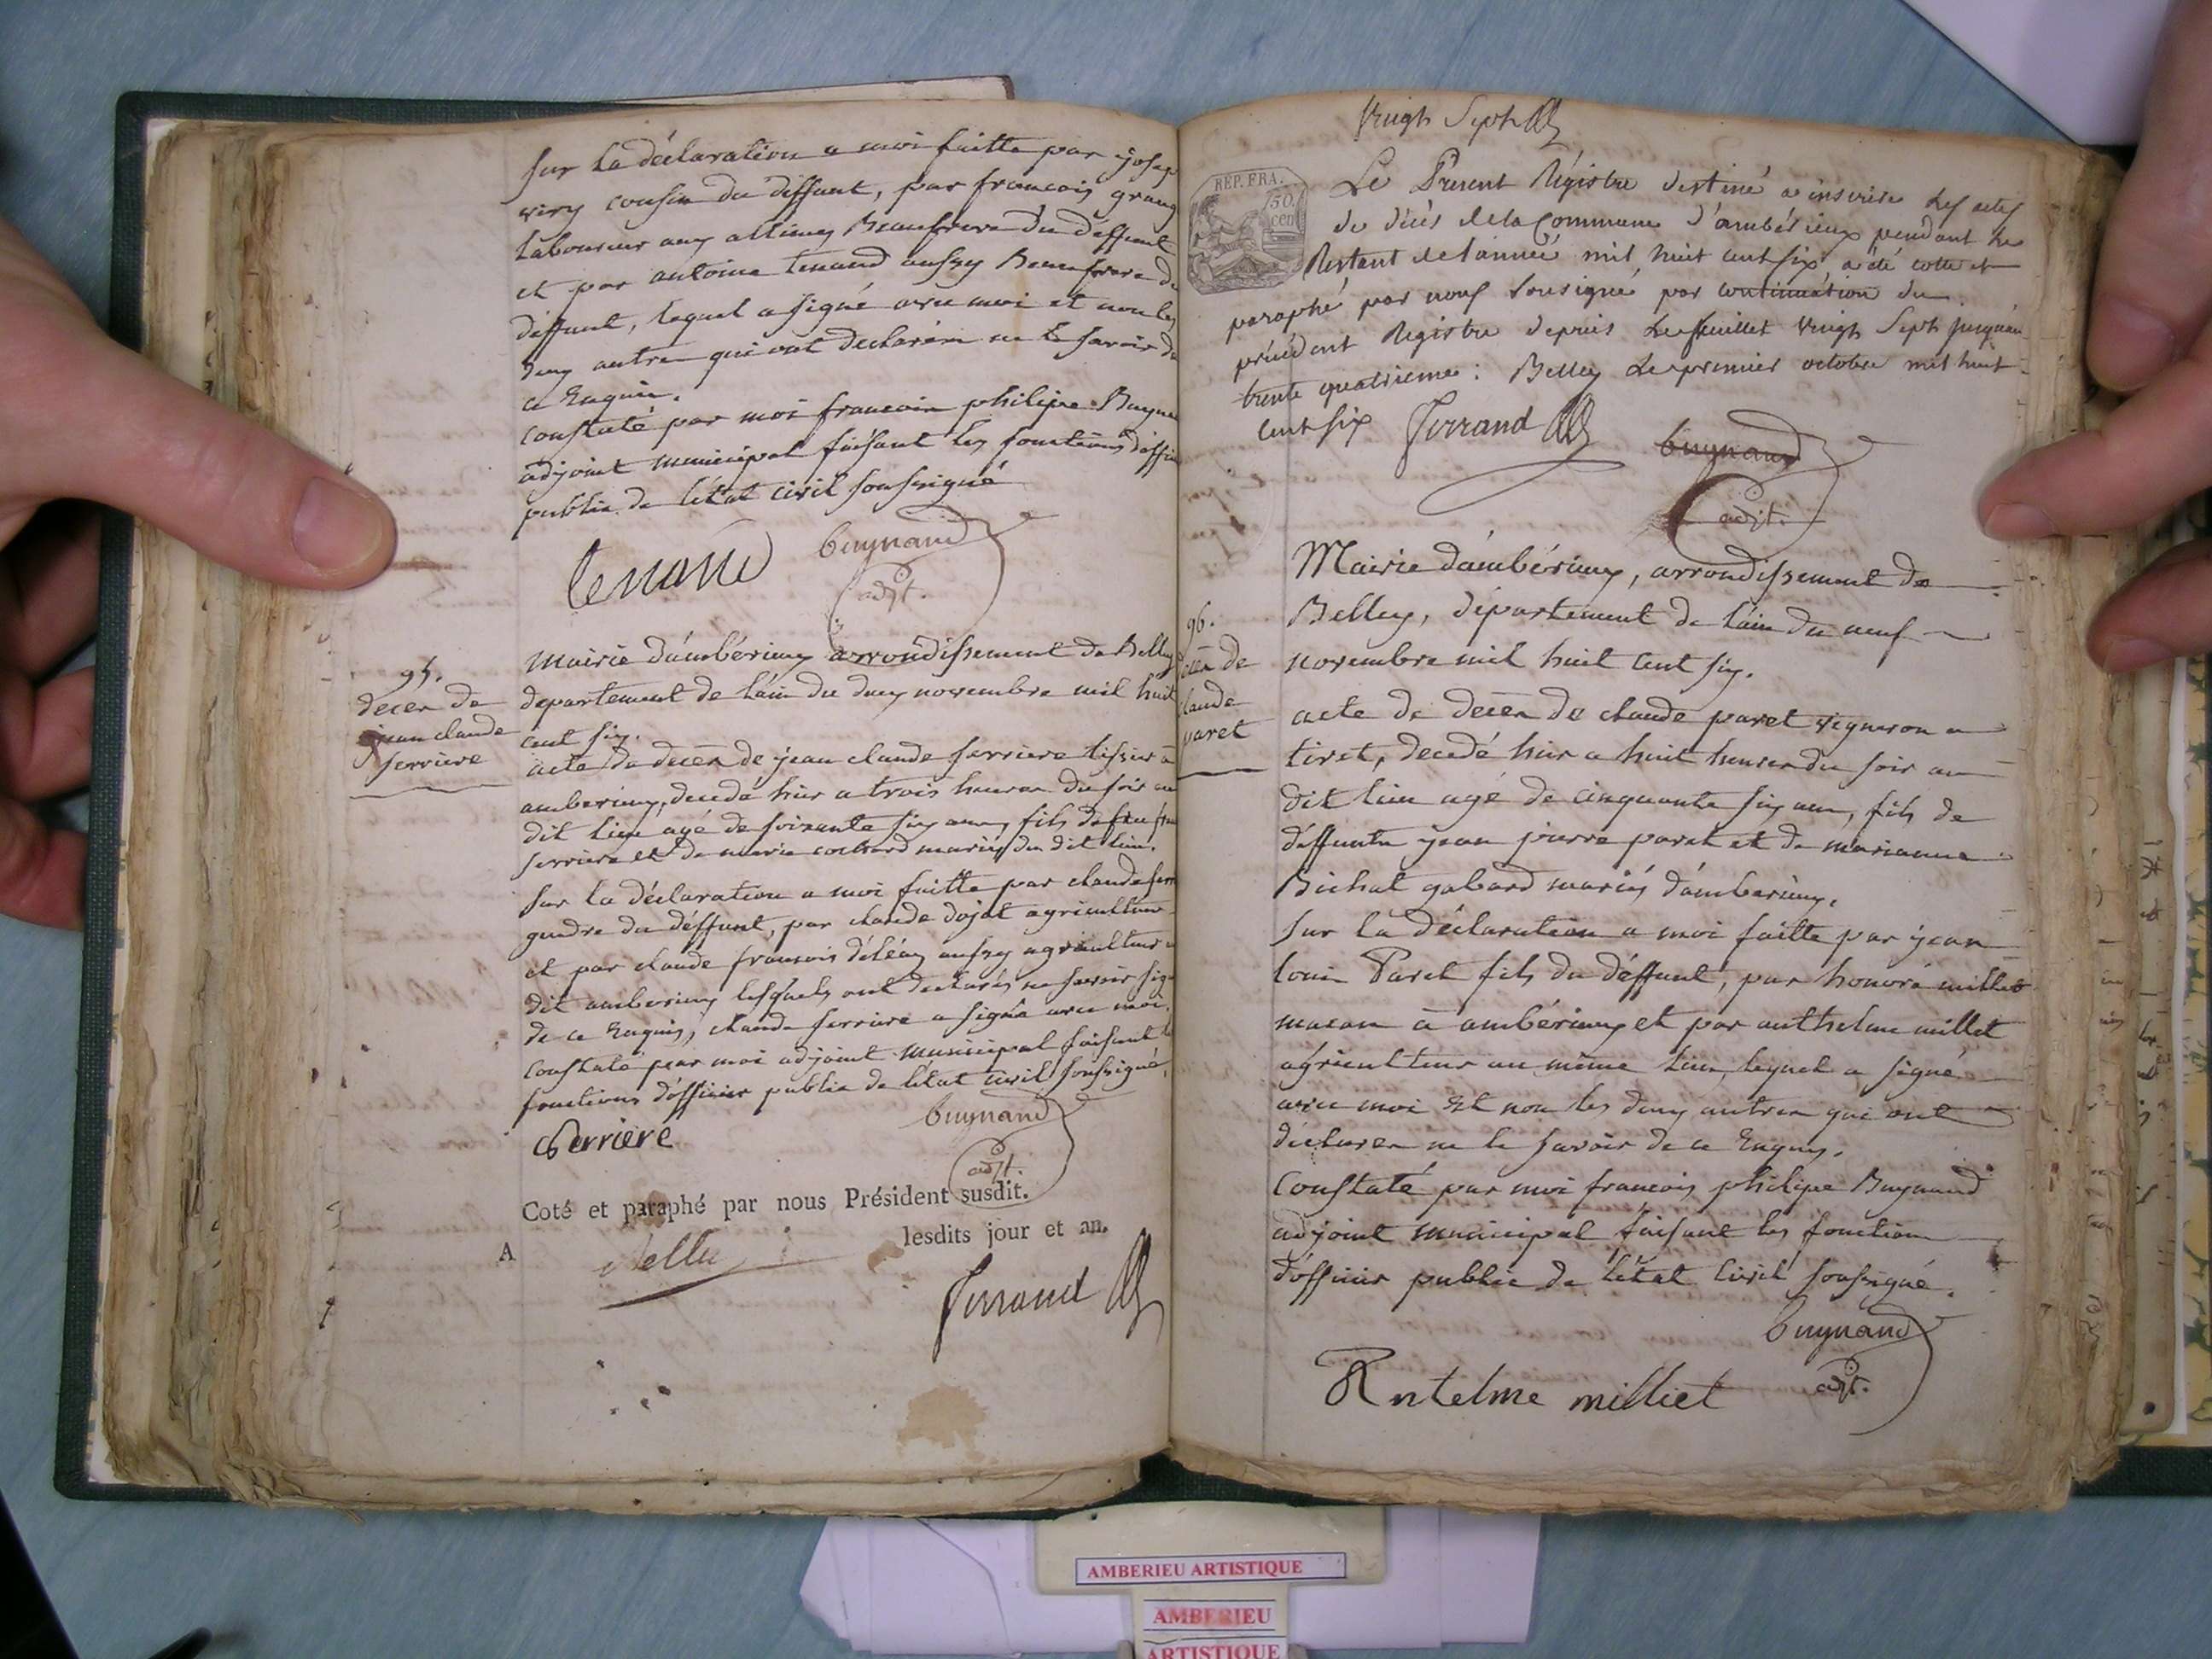 Sur la déclaration a moi faitte par josep
viry cousin du déffunt, par francois grang
laboureur aux allimes Beaufrere du déffunt
et par antoine tenand aussy Beaufrere du
déffunt, lequel a signé avec moi et non les
deux autres qui ont declarés ne le savoir de
ce Enquis.
Constaté par moi francois philipe Buynan
adjoint municipal faisant les fonctions d'offi
public de l'état civil soussigné
tenand Buynand
adjt.
95.
deces de
jean claude
serriere
Mairie d'ambérieux arrondissement de Belley
département de l'ain du deux novembre mil huit
cent six.
acte de deces de jean claude serriere tissier a
amberieux, decedé hier a trois heures du soir au
dit lieu agé de soixante six ans, fils de feu
serriere et de marie cochard mariés du dit lieu.
Sur la déclaration a moi faitte par claude serr
gendre du déffunt, par claude dojat agriculteur
et par claude francois déléaz aussy agriculteur a
dit amberieux lesquels ont declarés ne savoir sig
de ce Enquis, claude serriere a signé avec moi.
Constaté par moi adjoint municipal faisant les
fonctions d'officier public de l'état civil soussigné,
C Serriere Buynand
adjt.
Coté et paraphé par nous Président susdit.
A Belley lesdits jour et an.
Ferrand
Vingt Sept
REP. FRA.
50.
cen
Le Present Régistre destiné a inscrire Les actes
de décès de la Commune d'ambérieux pendant le
Restant de l'année mil huit cent six a été cotté et
paraphé par nous Sousigné par continuation du
précédent Registre depuis Le feuillet Vingt Sept jusqu'au
trente quatrieme : Belley Le premier octobre mil huit
cent six Ferrand Buynand
adjt.
96.
deces de
claude
paret
Mairie d'ambérieux, arrondissement de
Belley, département de l'ain du neuf
novembre mil huit cent six.
acte de deces de claude paret vigneron a
tiret, decedé hier a huit heures du soir au
dit lieu agé de cinquante six ans, fils de
déffunts jean pierre paret et de marianne
Bichat gabard mariés d'amberieux.
Sur la déclaration a moi faitte par jean
louis Paret fils du déffunt, par honoré milliet
macon a ambérieux et par anthelme milliet
agriculteur au même lieu, lequel a signé
avec moi et non les deux autres qui ont
déclarés ne le savoir de ce Enquis.
Constaté par moi francois philipe Buynand
adjoint municipal faisant les fonctions
d'officier public de l'état civil soussigné.
Buynand
adjt.
Antelme milliet
AMBERIEU ARTISTIQUE
AMBERIEU
ARTISTIQUE